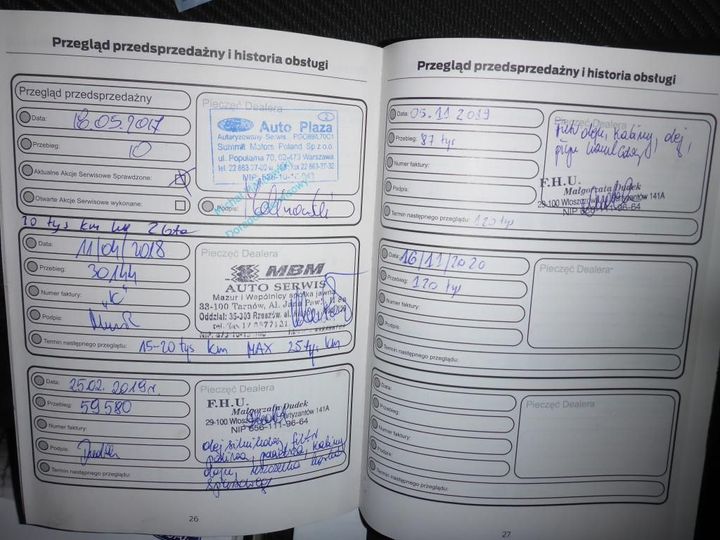 Przegląd przedsprzedażny i historia obsługi
Przegląd przedsprzedażny
Data: 16.05.2017
Przebieg: 10
Aktualne Akcje Serwisowe Sprawdzone:
Otwarte Akcje Serwisowe wykonane:
Pieczęć Dealera
Auto Plaza
Autoryzowany Serwis
Summit Motors Poland Sp z o.o.
ul. Popularna 70, 02-473 Warszawa
Podpis:
Data: 11/04/2018
Przebieg: 30144
Numer faktury: "K"
Podpis:
Termin następnego przeglądu: 15-20 tys km MAX 25 tys km
Pieczęć Dealera
MBM
AUTO SERWIS
Mazur i Wspólnicy spółka jawna
33-100 Tarnów, Al. Jana
Oddział: 35-303 Rzeszów, al.
Data: 25.02.2019r.
Przebieg: 59580
Numer faktury:
Podpis:
Termin następnego przeglądu:
Pieczęć Dealera
F.H.U.
Małgorzata Dudek
29-100 Włoszczowa 141A
NIP 656-111-96-64
olej silnikowy, filtr
paliwa, powietrza, kabiny
oleju
26
Przegląd przedsprzedażny i historia obsługi
Data: 05.11.2019
Przebieg: 87 tys
Numer faktury:
Podpis:
Termin następnego przeglądu: 120 tys
Filtr oleju, kabiny, olej,
F.H.U.
Małgorzata Dudek
29-100 141A
NIP 656-111-96-64
Data: 16/11/2020
Przebieg: 120 tys
Numer faktury:
Podpis:
Termin następnego przeglądu:
Pieczęć Dealera
Data:
Przebieg:
Numer faktury:
Podpis:
Termin następnego przeglądu:
Pieczęć Dealera
27